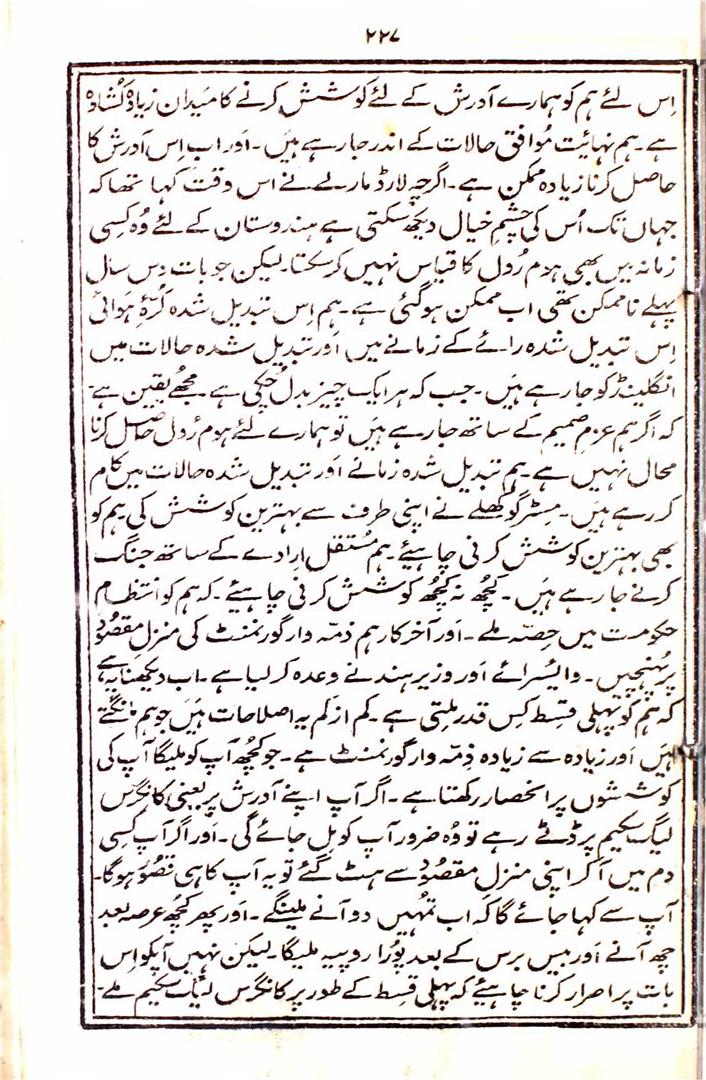 ۲۲۷
اِس لئے ہم کو ہمارے آدرش کے لئے کوشش کرنے کا میدان زیادہ کُشادہ
ہے۔ ہم نہائیت مُوافق حالات کے اندر جا رہے ہیں۔ اَور اب اِس آدرش کا
حاصل کرنا زیادہ ممکن ہے۔ اگرچہ لارڈ مارلے نے اس وقت کہا تھا کہ
جہاں تک اُس کی چشمِ خیال دیکھ سکتی ہے ہندوستان کے لئے وُہ کِسی
زمانہ میں بھی ہوم رُول کا قیاس نہیں کر سکتا۔ لیکن جو بات دس سال
پہلے ناممکن تھی اب ممکن ہو گئی ہے۔ ہم اِس تبدیل شدہ کُرّۂ ہَوائی
اِس تبدیل شدہ رائے کے زمانے میں اَور تبدیل شدہ حالات میں
انگلینڈ کو جا رہے ہیں۔ جب کہ ہر ایک چیز بدل چُکی ہے۔ مجھے یقین ہے۔
کہ اگر ہم عزمِ صمیم کے ساتھ جا رہے ہیں تو ہمارے لئے ہوم رُول حاصل کرنا
محال نہیں ہے۔ ہم تبدیل شدہ زمانے اَور تبدیل شدہ حالات میں کام
کر رہے ہیں۔ مِسٹر گوکھلے نے اپنی طرف سے بہترین کوشش کی۔ ہم کو
بھی بہترین کوشش کرنی چاہیئے۔ ہم مُستقل اِرادے کے ساتھ جنگ
کرنے جا رہے ہیں۔ کچُھ نہ کچُھ کوشش کرنی چاہیئے۔ کہ ہم کو انتظام
حکومت میں حِصّہ ملے۔ اَور آخر کار ہم ذمّہ وار گورنمنٹ کی منزلِ مقصُود
پر پُہنچیں۔ وائیسرائے اَور وزیر ہند نے وعدہ کر لیا ہے۔ اب دیکھنا یہ ہے
کہ ہم کو پہلی قِسط کِس قدر مِلتی ہے۔ کم از کم یہ اصلاحات ہیں جو ہم مانگتے
ہیں اَور زیادہ سے زیادہ ذِمّہ وار گورنمنٹ ہے۔ جو کُچھ آپ کو ملیگا آپ کی
کوششوں پر انحصار رکھتا ہے۔ اگر آپ اپنے آدرش پر یعنی کانگرس
لیگ سکیم پر ڈٹے رہے تو وُہ ضرور آپ کو مِل جائے گی۔ اَور اگر آپ کِسی
دم میں آ کر اپنی منزلِ مقصُود سے ہٹ گئے تو یہ آپ کا ہی قصُور ہوگا۔
آپ سے کہا جائے گا کہ اب تمُہیں دو آنے ملینگے۔ اَور پھر کُچھ عرصہ بعد
چھ آنے اَور بیس برس کے بعد پُورا روپیہ ملیگا۔ لیکن نہیں آپکو اِس
بات پر اصرار کرنا چاہیئے کہ پہلی قسط کے طور پر کانگرس لیگ سکیم ملے۔